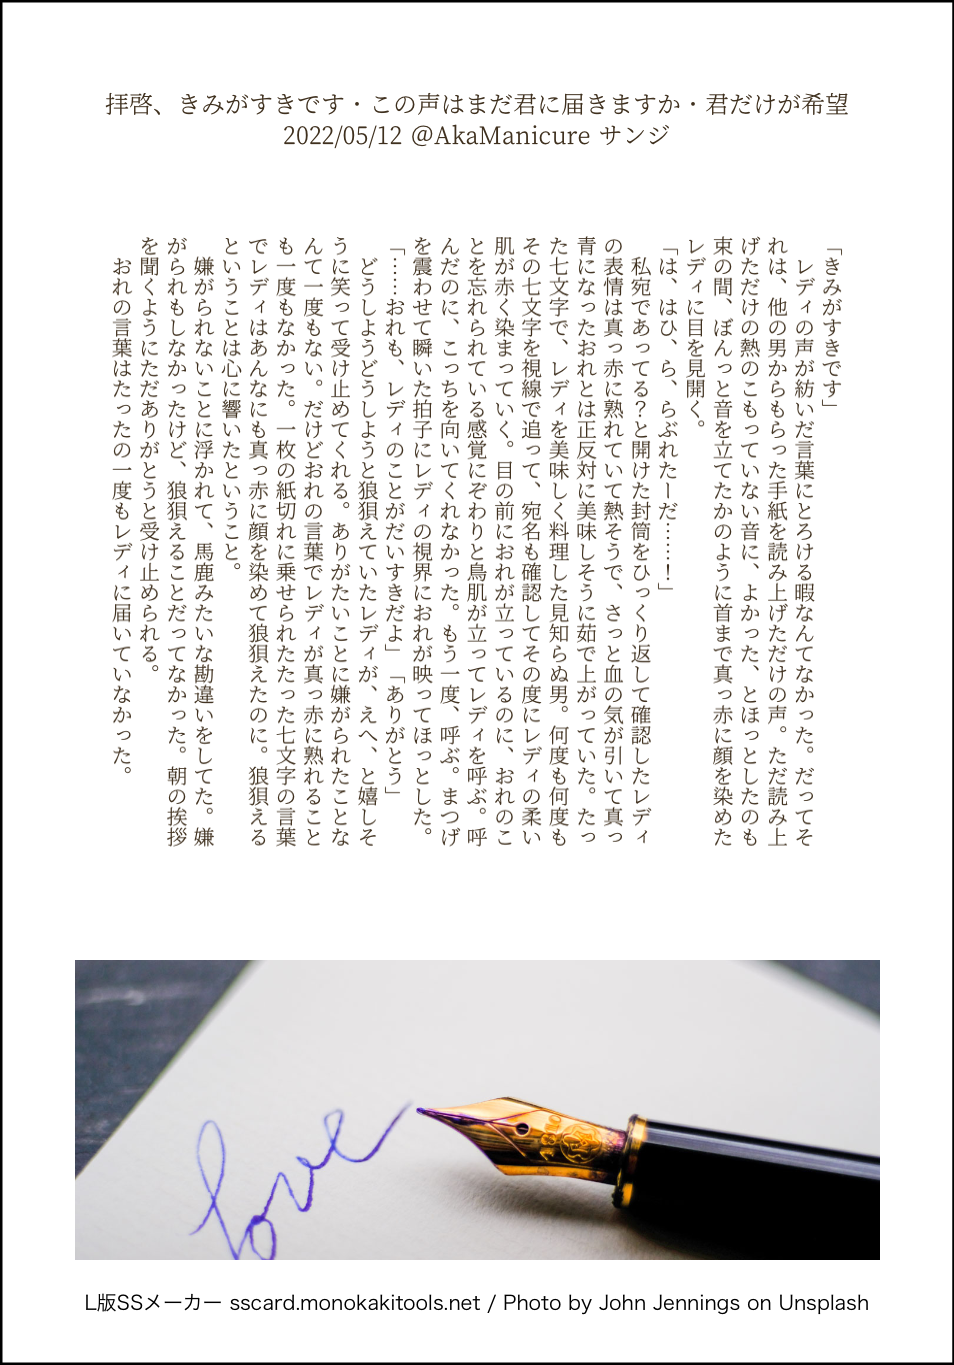 拝啓、きみがすきです・この声はまだ君に届きますか・君だけが希望
2022/05/12 @AkaManicure サンジ
「きみがすきです」
　レディの声が紡いだ言葉にとろける暇なんてなかった。だってそ
れは、他の男からもらった手紙を読み上げただけの声。ただ読み上
げただけの熱のこもっていない音に、よかった、とほっとしたのも
束の間、ぼんっと音を立てたかのように首まで真っ赤に顔を染めた
レディに目を見開く。
「は、はひ、ら、らぶれたーだ……！」
　私宛であってる？と開けた封筒をひっくり返して確認したレディ
の表情は真っ赤に熟れていて熱そうで、さっと血の気が引いて真っ
青になったおれとは正反対に美味しそうに茹で上がっていた。たっ
た七文字で、レディを美味しく料理した見知らぬ男。何度も何度も
その七文字を視線で追って、宛名も確認してその度にレディの柔い
肌が赤く染まっていく。目の前におれが立っているのに、おれのこ
とを忘れられている感覚にぞわりと鳥肌が立ってレディを呼ぶ。呼
んだのに、こっちを向いてくれなかった。もう一度、呼ぶ。まつげ
を震わせて瞬いた拍子にレディの視界におれが映ってほっとした。
「……おれも、レディのことがだいすきだよ」「ありがとう」
　どうしようどうしようと狼狽えていたレディが、えへ、と嬉しそ
うに笑って受け止めてくれる。ありがたいことに嫌がられたことな
んて一度もない。だけどおれの言葉でレディが真っ赤に熟れること
も一度もなかった。一枚の紙切れに乗せられたたった七文字の言葉
でレディはあんなにも真っ赤に顔を染めて狼狽えたのに。狼狽える
ということは心に響いたということ。
　嫌がられないことに浮かれて、馬鹿みたいな勘違いをしてた。嫌
がられもしなかったけど、狼狽えることだってなかった。朝の挨拶
を聞くようにただありがとうと受け止められる。
　おれの言葉はたったの一度もレディに届いていなかった。
love
L版SSメーカー sscard.monokakitools.net / Photo by John Jennings on Unsplash